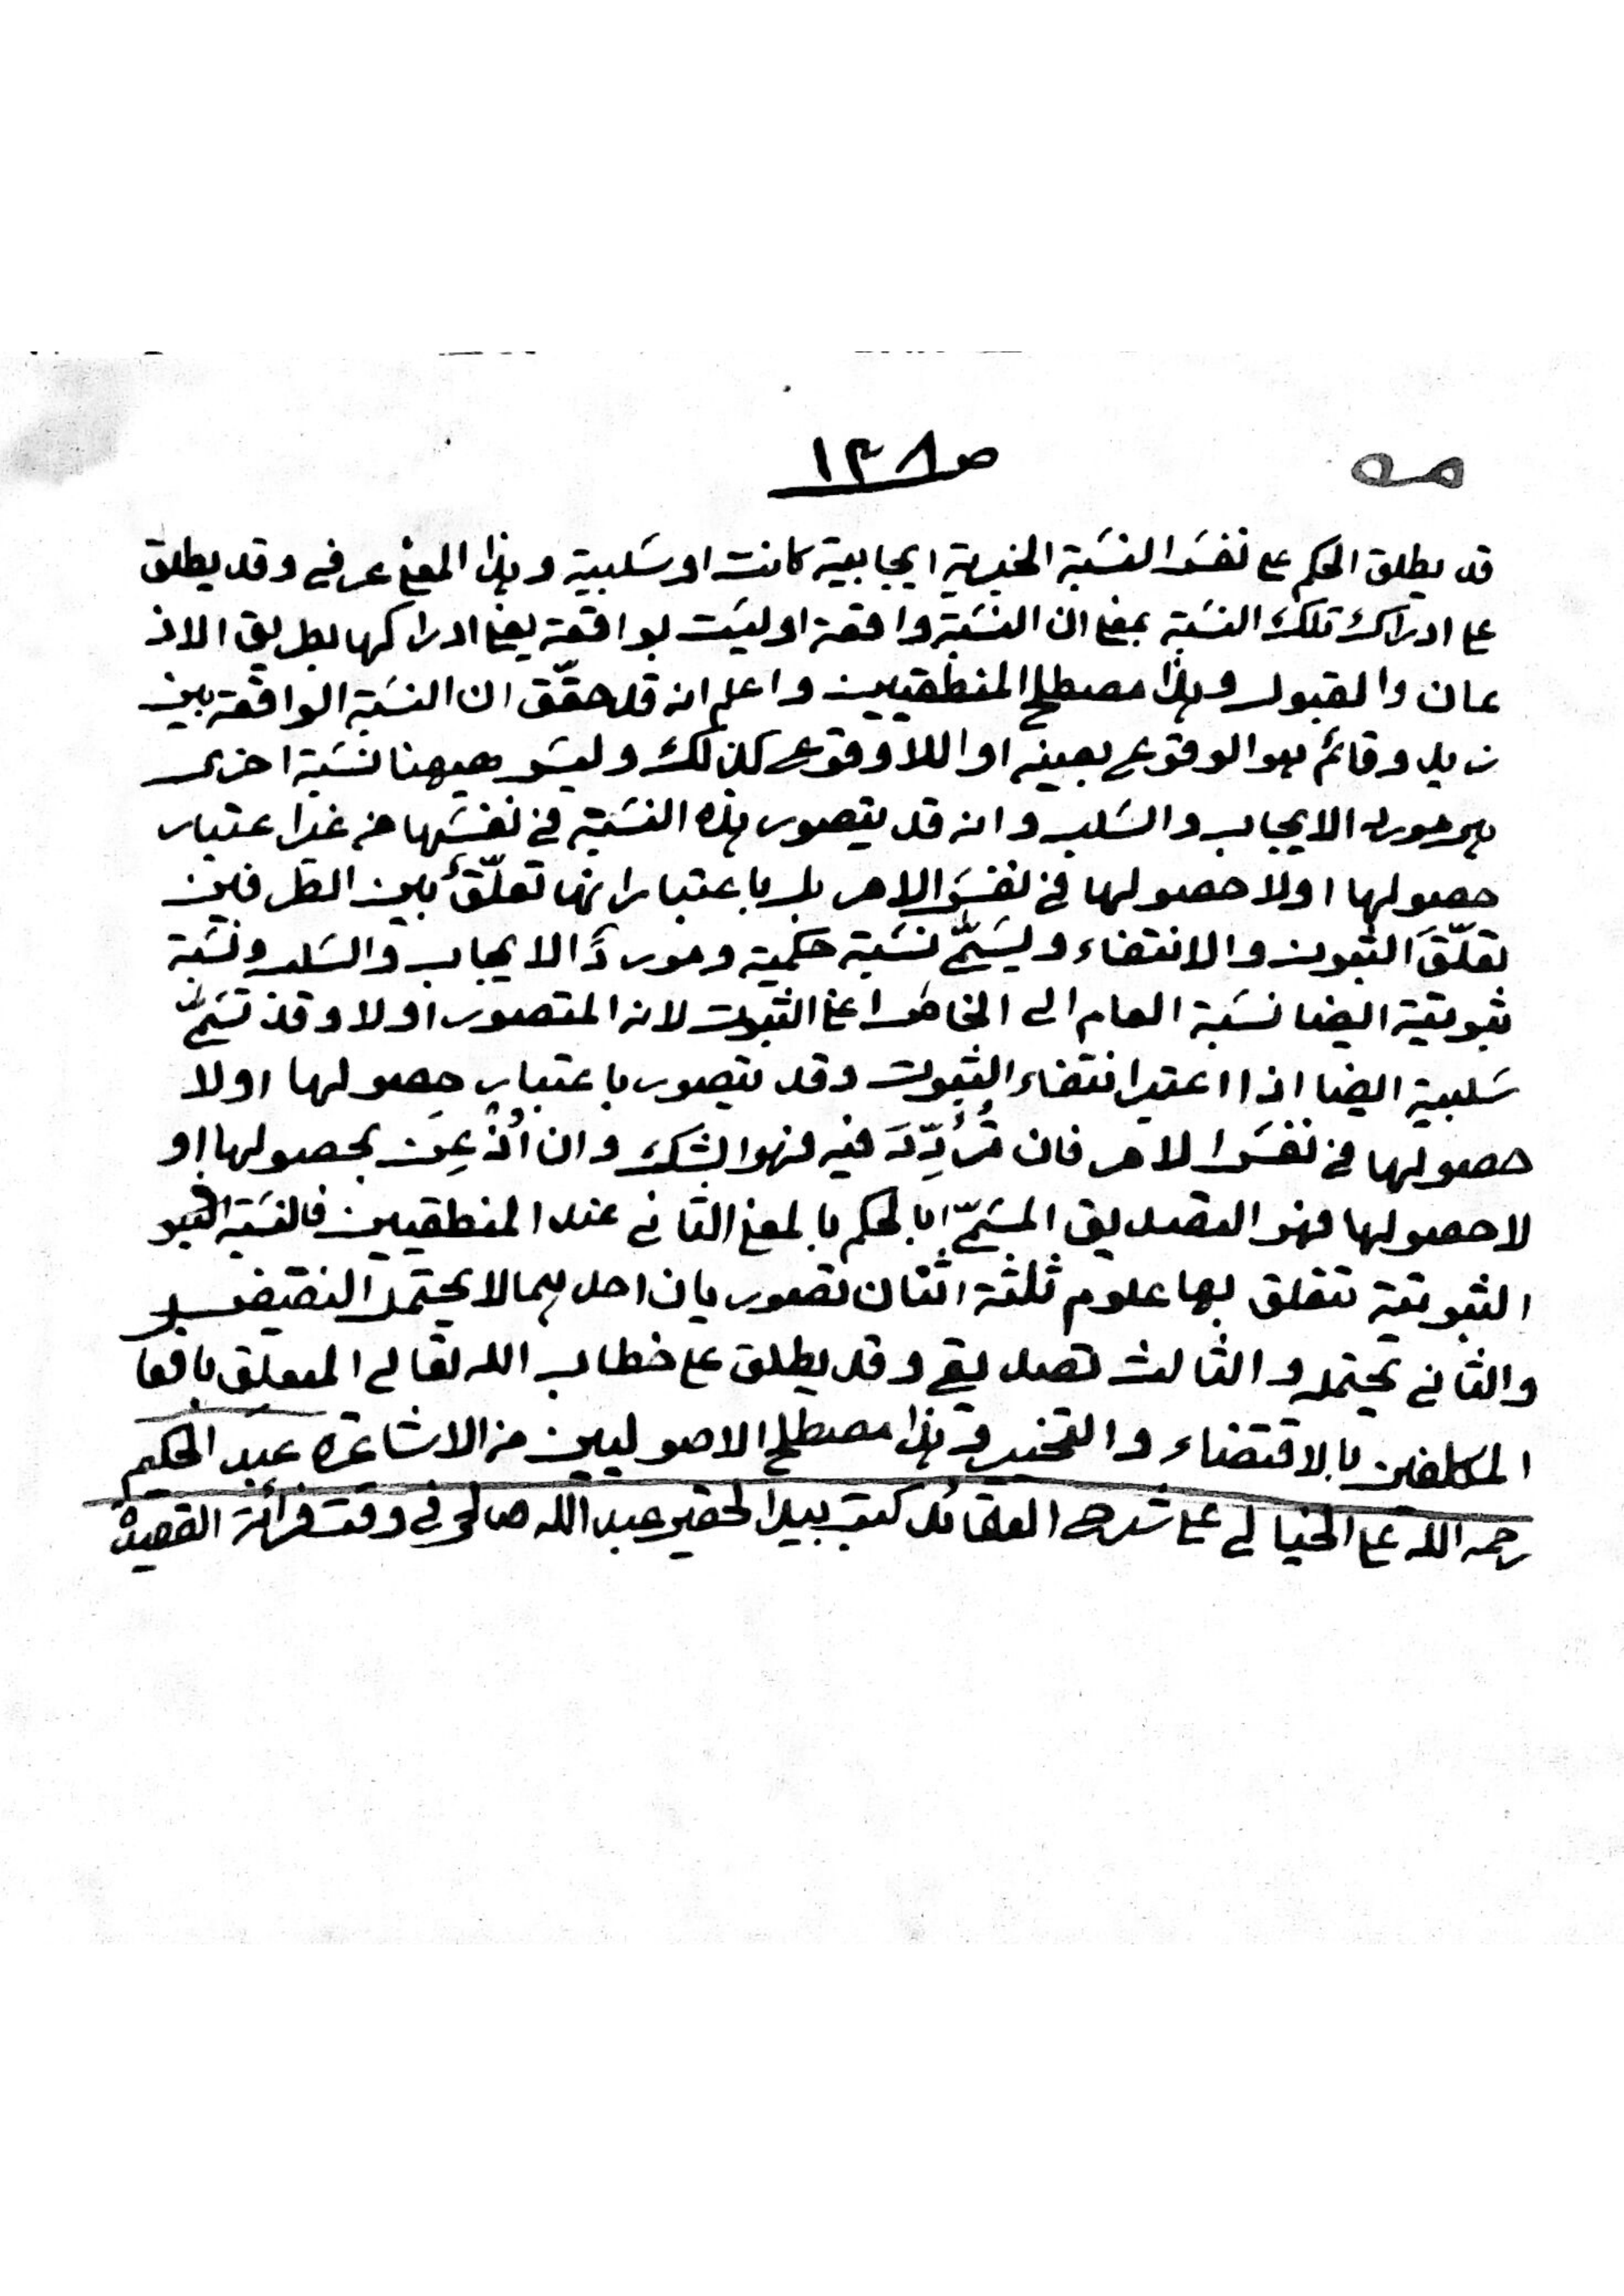 ص ١٣٨
قد يطلق الحكم على نفس النسبة الخبرية ايجابية كانت او سلبية وهذا المعنى عرفي وقد يطلق
على ادراك تلك النسبة بمعنى ان النسبة واقعة او ليست بواقعة يعنى ادراكها بطريق الاذ
عان والقبول وهذا مصطلح المنطقيين واعلم انه قد حقّق ان النسبة الواقعة بين
زيد وقائم هو الوقوع بعينه او اللاوقوع كذلك وليس ههنا نسبة اخرى
هو مورد الايجاب والسلب وانه قد يتصور هذه النسبة فى نفسها من غير اعتبار
حصولها اولا حصولها فى نفس الامر بل باعتبار انها تعلّقٌ بين الطرفين
تعلّقَ الثبوت والانتفاء ويسمّى نسبة حكمية وموردَ الايجاب والسلب ونسبة
ثبوتية ايضا نسبة العام الى الخاص اعنى الثبوت لانه المتصور اولا وقد تسمّى
سلبية ايضا اذا اعتبر انتفاء الثبوت وقد يتصور باعتبار حصولها اولا
حصولها فى نفس الامر فان تُرُدِّدَ فيه فهو الشك وان اُذْعِنَ بحصولها او
لا حصولها فهو التصديق المسمّى بالحكم بالمعنى الثانى عند المنطقيين فالنسبة
الثبوتية تتعلق بها علوم ثلثة اثنان تصوريان احدهما لا يحتمل النقيض
والثانى يحتمله والثالث تصديقى وقد يطلق على خطاب الله تعالى المتعلق بافعا
المكلفين بالاقتضاء والتخيير وهذا مصطلح الاصوليين من الاشاعرة عبد الحكيم
رحمه الله على الخيالى على شرح العقائد كتب بيد الحقير عبد الله صالحى فى وقت قرائة القصيدة